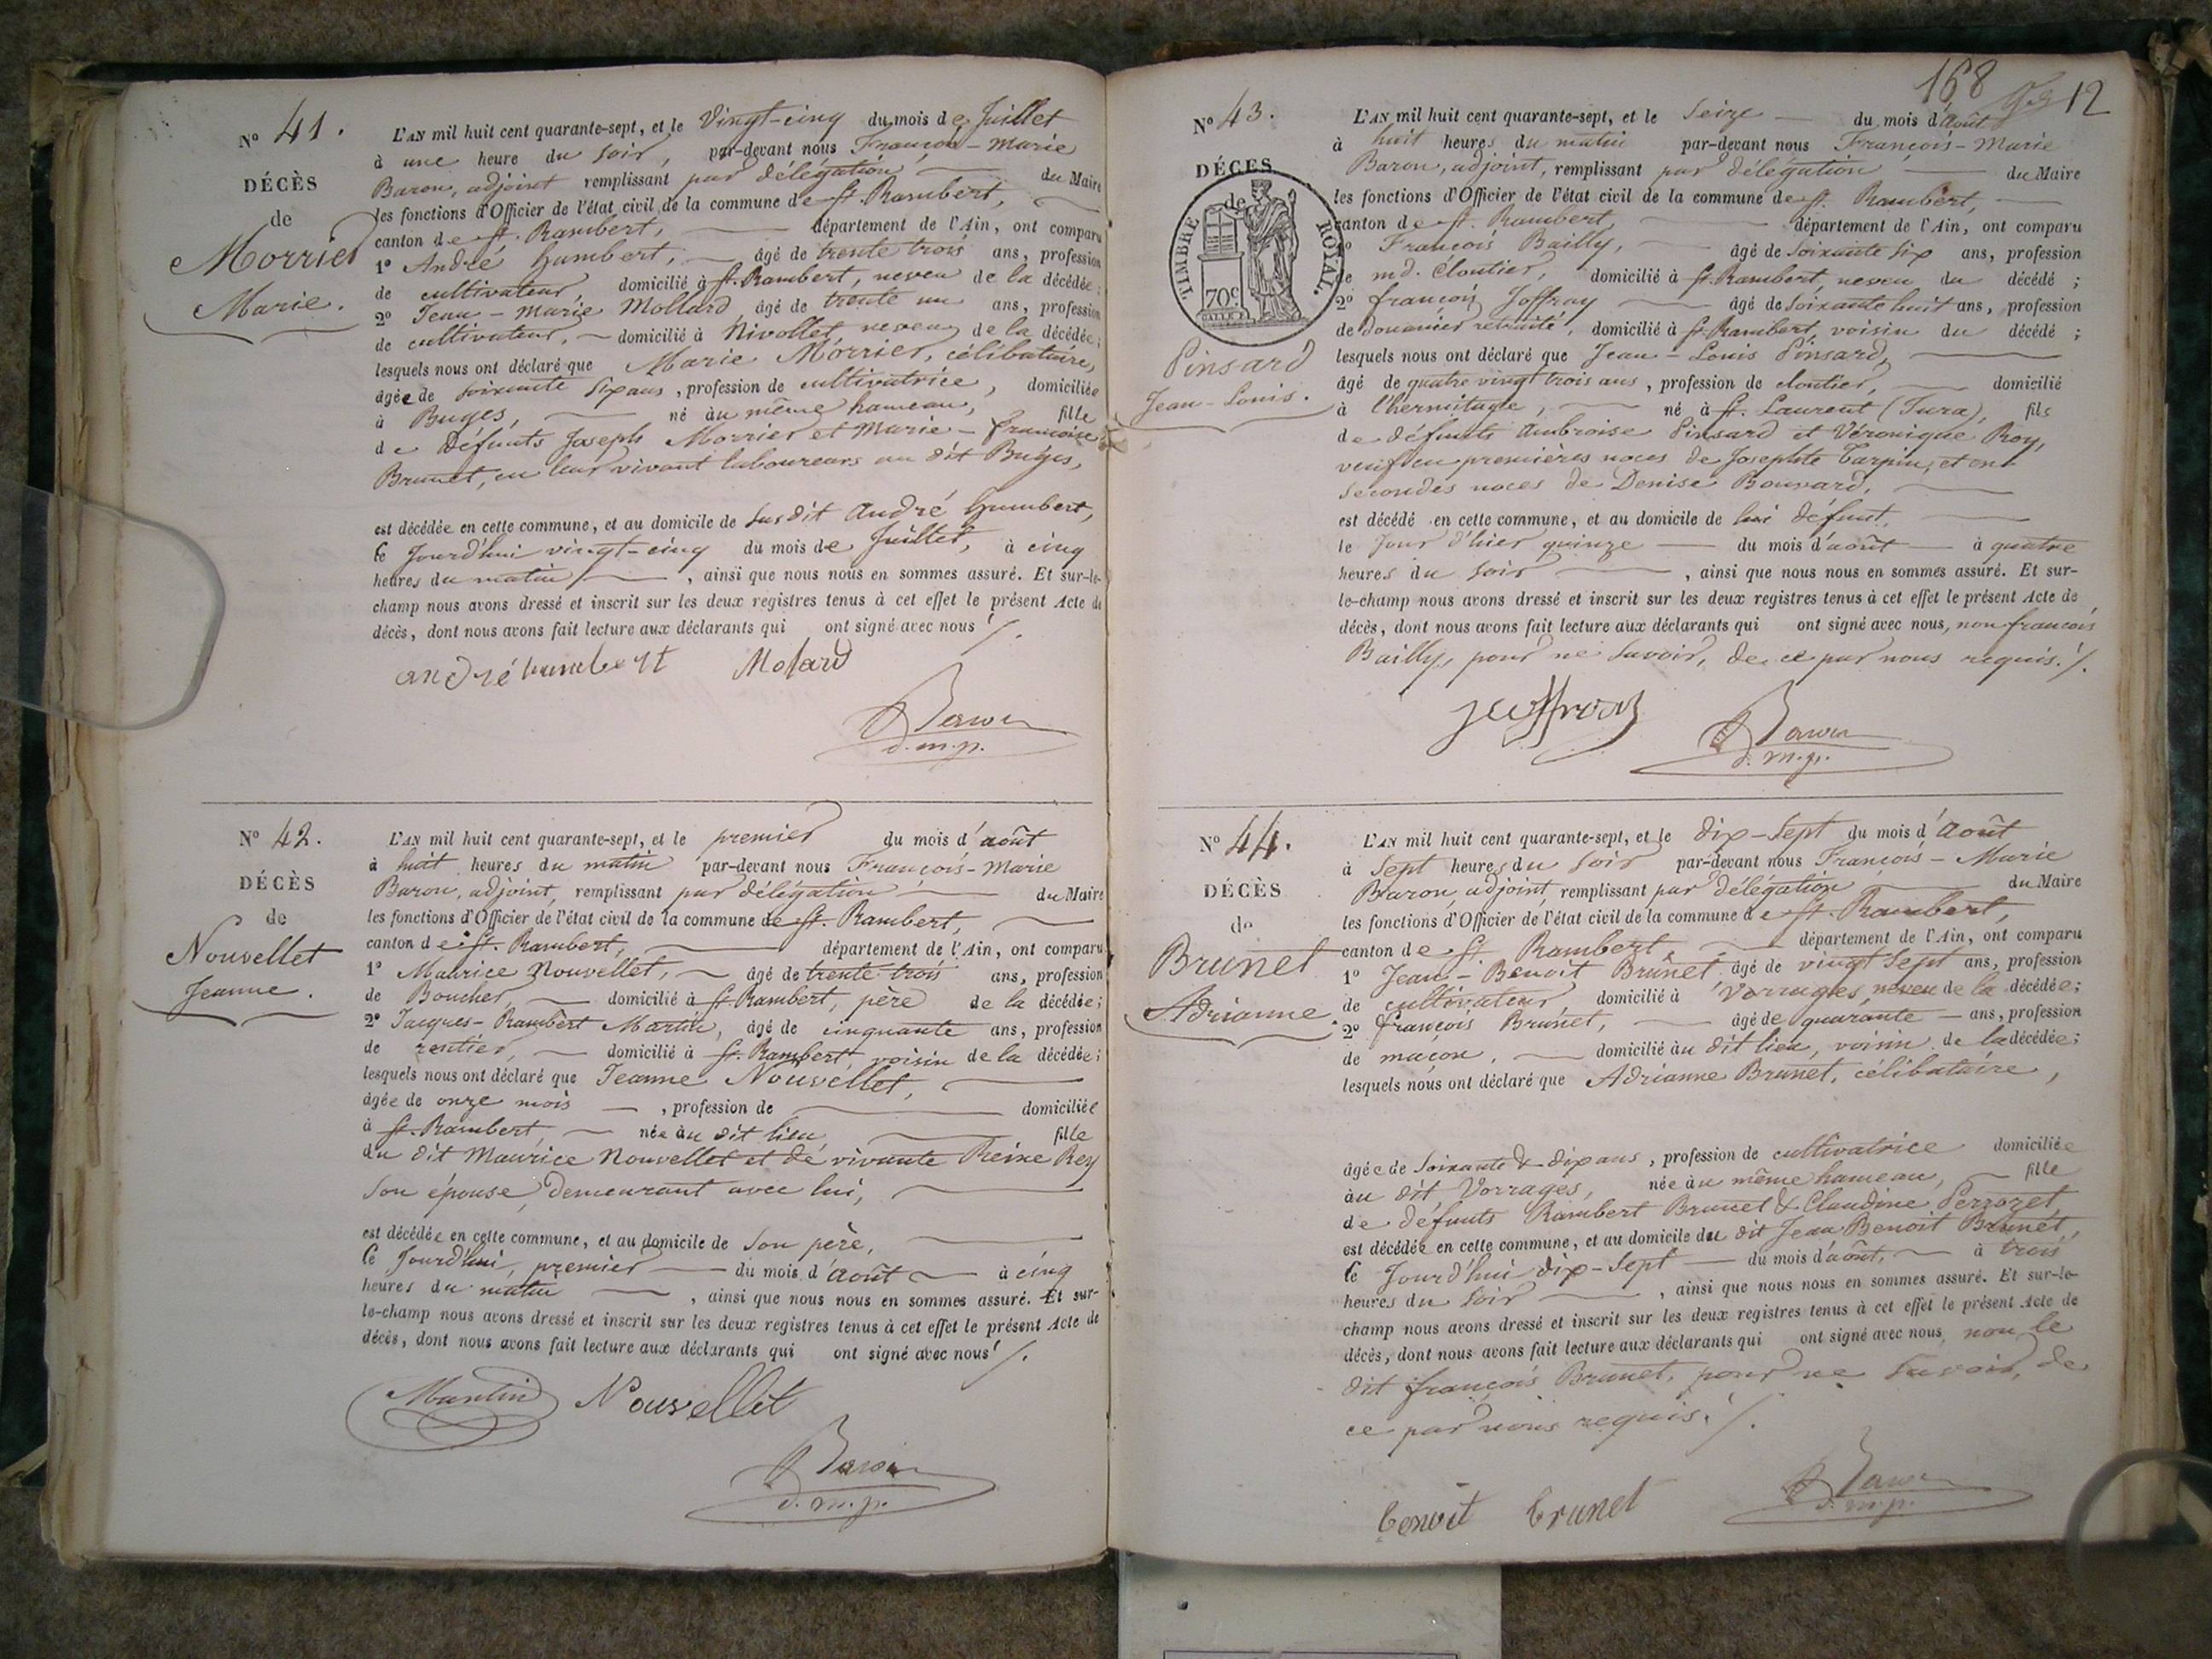 N° 41.
DÉCÈS
de
Morrier
Marie.
L'AN mil huit cent quarante-sept, et le Vingt-cinq du mois de Juillet
à une heure du soir, par-devant nous François-Marie
Baron, adjoint remplissant par délégation du Maire
les fonctions d'Officier de l'état civil de la commune de St. Rambert,
canton de St. Rambert, département de l'Ain, ont comparu
1° André humbert, âgé de trente trois ans, profession
de cultivateur, domicilié à St. Rambert, neveu de la décédée;
2° Jean-Marie Mollard, âgé de trente un ans, profession
de cultivateur, domicilié à Nivollet, neveu de la décédée;
lesquels nous ont déclaré que Marie Morrier, célibataire,
âgée de soixante six ans, profession de cultivatrice, domiciliée
à Buges, né au même hameau, fille
de Défunts Joseph Morrier et Marie-françoise
Brunet, en leur vivant laboureurs au dit Buges,
est décédée en cette commune, et au domicile de susdit André humbert,
le Jourd'hui vingt-cinq du mois de Juillet, à cinq
heures du matin, ainsi que nous nous en sommes assuré. Et sur-le-
champ nous avons dressé et inscrit sur les deux registres tenus à cet effet le présent Acte de
décès, dont nous avons fait lecture aux déclarants qui ont signé avec nous ./.
andré humbert Molard
Baron
d. m. p.
N° 42.
DÉCÈS
de
Nouvellet
Jeanne.
L'AN mil huit cent quarante-sept, et le premier du mois d'août
à huit heures du matin par-devant nous François-Marie
Baron, adjoint, remplissant par délégation du Maire
les fonctions d'Officier de l'état civil de la commune de St. Rambert,
canton de St. Rambert, département de l'Ain, ont comparu
1° Maurice Nouvellet, âgé de trente trois ans, profession
de Boucher, domicilié à St. Rambert, père de la décédée;
2° Jacques-Rambert Martin, âgé de cinquante ans, profession
de rentier, domicilié à St. Rambert voisin de la décédée;
lesquels nous ont déclaré que Jeanne Nouvellet,
âgée de onze mois, profession de domiciliée
à St. Rambert, née au dit lieu, fille
du dit Maurice Nouvellet et de vivante Reine Rey
son épouse, demeurant avec lui,
est décédée en cette commune, et au domicile de son père,
le Jourd'hui, premier du mois d'août à cinq
heures du matin, ainsi que nous nous en sommes assuré. Et sur-
le-champ nous avons dressé et inscrit sur les deux registres tenus à cet effet le présent Acte de
décès, dont nous avons fait lecture aux déclarants qui ont signé avec nous ./.
Martin Nouvellet
Baron
d. m. p.
168
12
N° 43.
DÉCES
de
TIMBRE ROYAL.
70c
Pinsard
Jean-Louis.
L'AN mil huit cent quarante-sept, et le seize du mois d'août
à huit heures du matin par-devant nous François-Marie
Baron, adjoint, remplissant par délégation du Maire
les fonctions d'Officier de l'état civil de la commune de St. Rambert,
canton de St. Rambert, département de l'Ain, ont comparu
1° François Bailly, âgé de soixante six ans, profession
de md. cloutier, domicilié à St. Rambert, neveu du décédé;
2° françois Joffray âgé de soixante huit ans, profession
de douanier retraité, domicilié à St. Rambert, voisin du décédé;
lesquels nous ont déclaré que Jean-Louis Pinsard,
âgé de quatre vingt trois ans, profession de cloutier, domicilié
à l'hermitage, né à St. Laurent (Jura), fils
de défunts Ambroise Pinsard et Véronique Roy,
veuf en premières noces de Josephte Tarpin, et en
secondes noces de Denise Bouvard,
est décédé en cette commune, et au domicile de lui défunt,
le Jour d'hier quinze du mois d'août à quatre
heures du soir, ainsi que nous nous en sommes assuré. Et sur-
le-champ nous avons dressé et inscrit sur les deux registres tenus à cet effet le présent Acte de
décès, dont nous avons fait lecture aux déclarants qui ont signé avec nous, non françois
Bailly, pour ne savoir, de ce par nous requis. ./.
Baron
d. m. p.
N° 44.
DÉCÈS
de
Brunet
Adrianne.
L'AN mil huit cent quarante-sept, et le dix-sept du mois d'août
à sept heures du soir par-devant nous François-Marie
Baron, adjoint, remplissant par délégation du Maire
les fonctions d'Officier de l'état civil de la commune de St. Rambert,
canton de St. Rambert, département de l'Ain, ont comparu
1° Jean-Benoit Brunet âgé de vingt sept ans, profession
de cultivateur, domicilié à Vorrages, neveu de la décédée;
2° françois Brunet, âgé de quarante ans, profession
de maçon, domicilié au dit lieu, voisin de la décédée;
lesquels nous ont déclaré que Adrianne Brunet, célibataire,
âgée de soixante & dix ans, profession de cultivatrice domiciliée
au dit Vorrages, née au même hameau, fille
de défunts Rambert Brunet & Claudine Perrozet
est décédée en cette commune, et au domicile du dit Jean Benoit Brunet,
le Jourd'hui dix-sept du mois d'août, à trois
heures du soir, ainsi que nous nous en sommes assuré. Et sur-le-
champ nous avons dressé et inscrit sur les deux registres tenus à cet effet le présent Acte de
décès, dont nous avons fait lecture aux déclarants qui ont signé avec nous, non le
dit françois Brunet, pour ne savoir, de
ce par nous requis. ./.
benoit brunet
Baron
d. m. p.